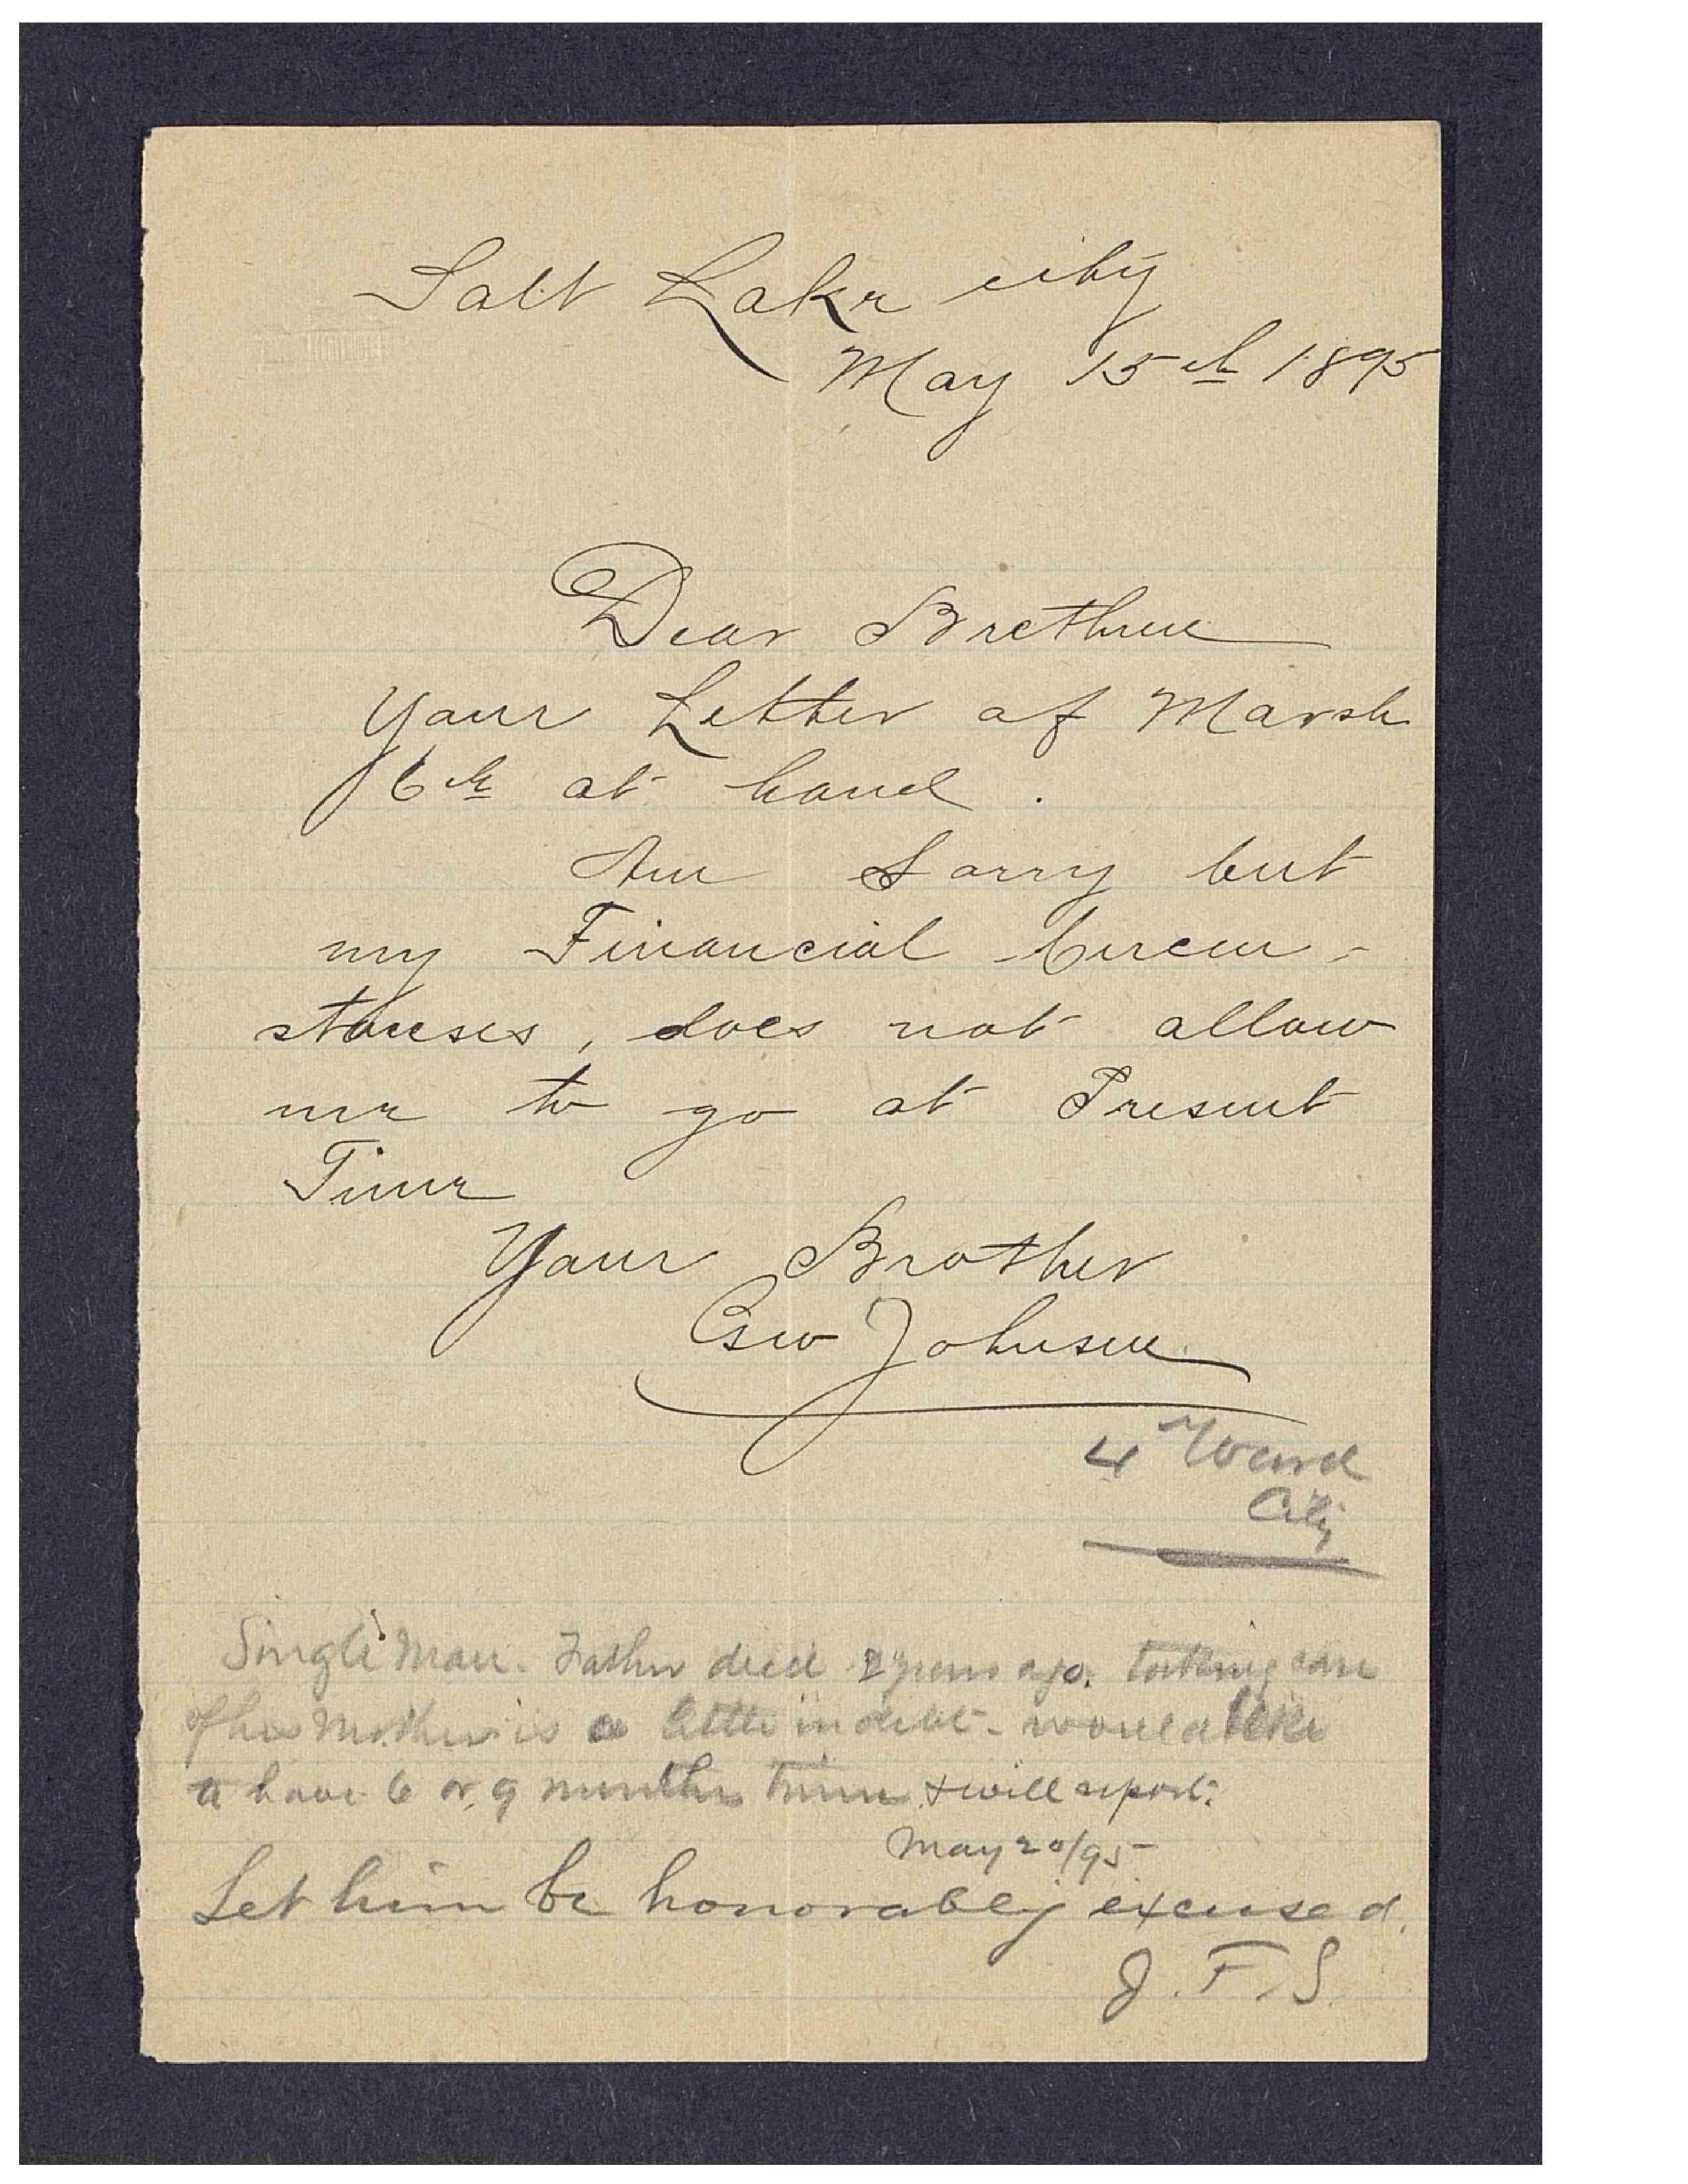 Salt Lake city
May 15th 1895
Dear Brethren
Your Letter of Marsh
6th at hand.
Am Sorry but
my Financial Circum-
stanses, does not allow
me to go at Present
Time
Your Brother
Geo Johnson
4 Ward
City
Single Man. Father died 2 years ago. taking care
of his Mother is a little in debt - would like
a have 6 or 9 months time & will report.
May 20/95
Let him be honorably excused.
J. F. S.